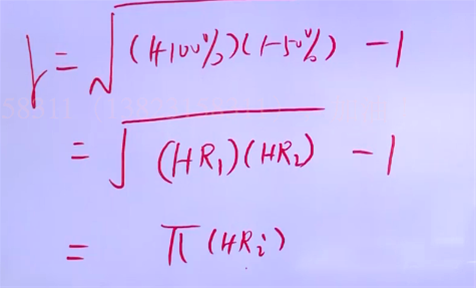 r = √(1+100%)(1-50%) - 1
= √(1+R₁)(1+R₂) - 1
= π(1+Rᵢ)